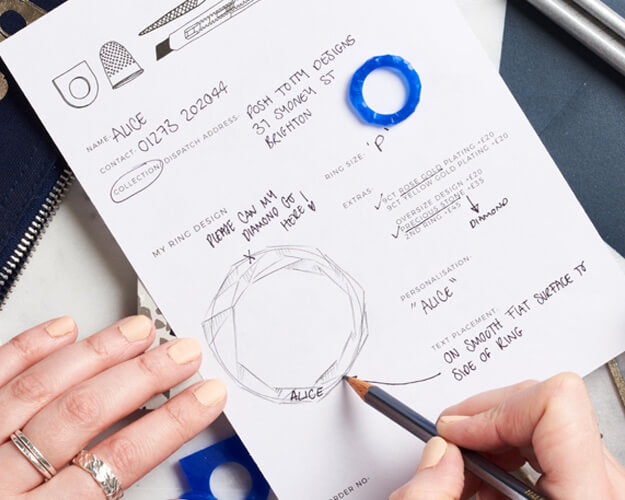 NAME: ALICE
CONTACT: 01273 202044
COLLECTION/DISPATCH ADDRESS: POSH TOTTY DESIGNS
37 SYDNEY ST
BRIGHTON
RING SIZE: 'P'
EXTRAS:
9CT ROSE GOLD PLATING +£20
9CT YELLOW GOLD PLATING +£20
OVERSIZE DESIGN +£20
PRECIOUS STONE +£35
2ND RING +£45
DIAMOND
MY RING DESIGN
PLEASE CAN MY
DIAMOND GO
HERE!
X
PERSONALISATION:
"ALICE"
TEXT PLACEMENT:
ON SMOOTH FLAT SURFACE TO
SIDE OF RING
ALICE
ORDER NO-